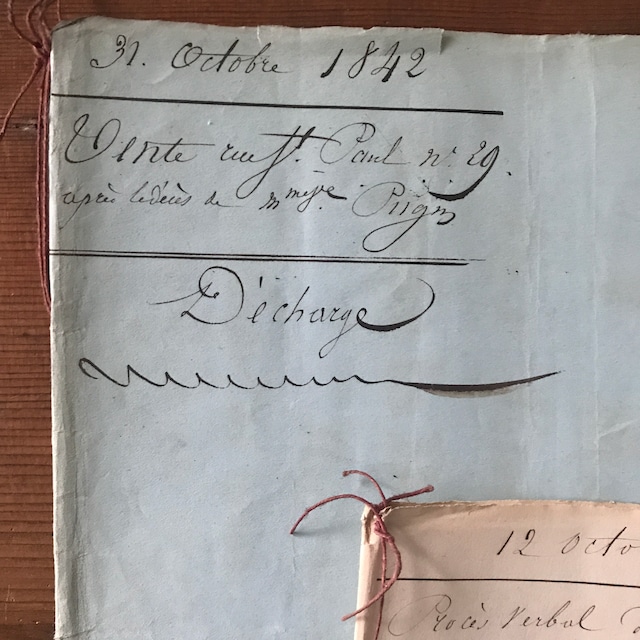 31. Octobre 1842
Vente rue St. Paul n° 29.
après le décès de
Décharge
12 Octo
Procès Verbal